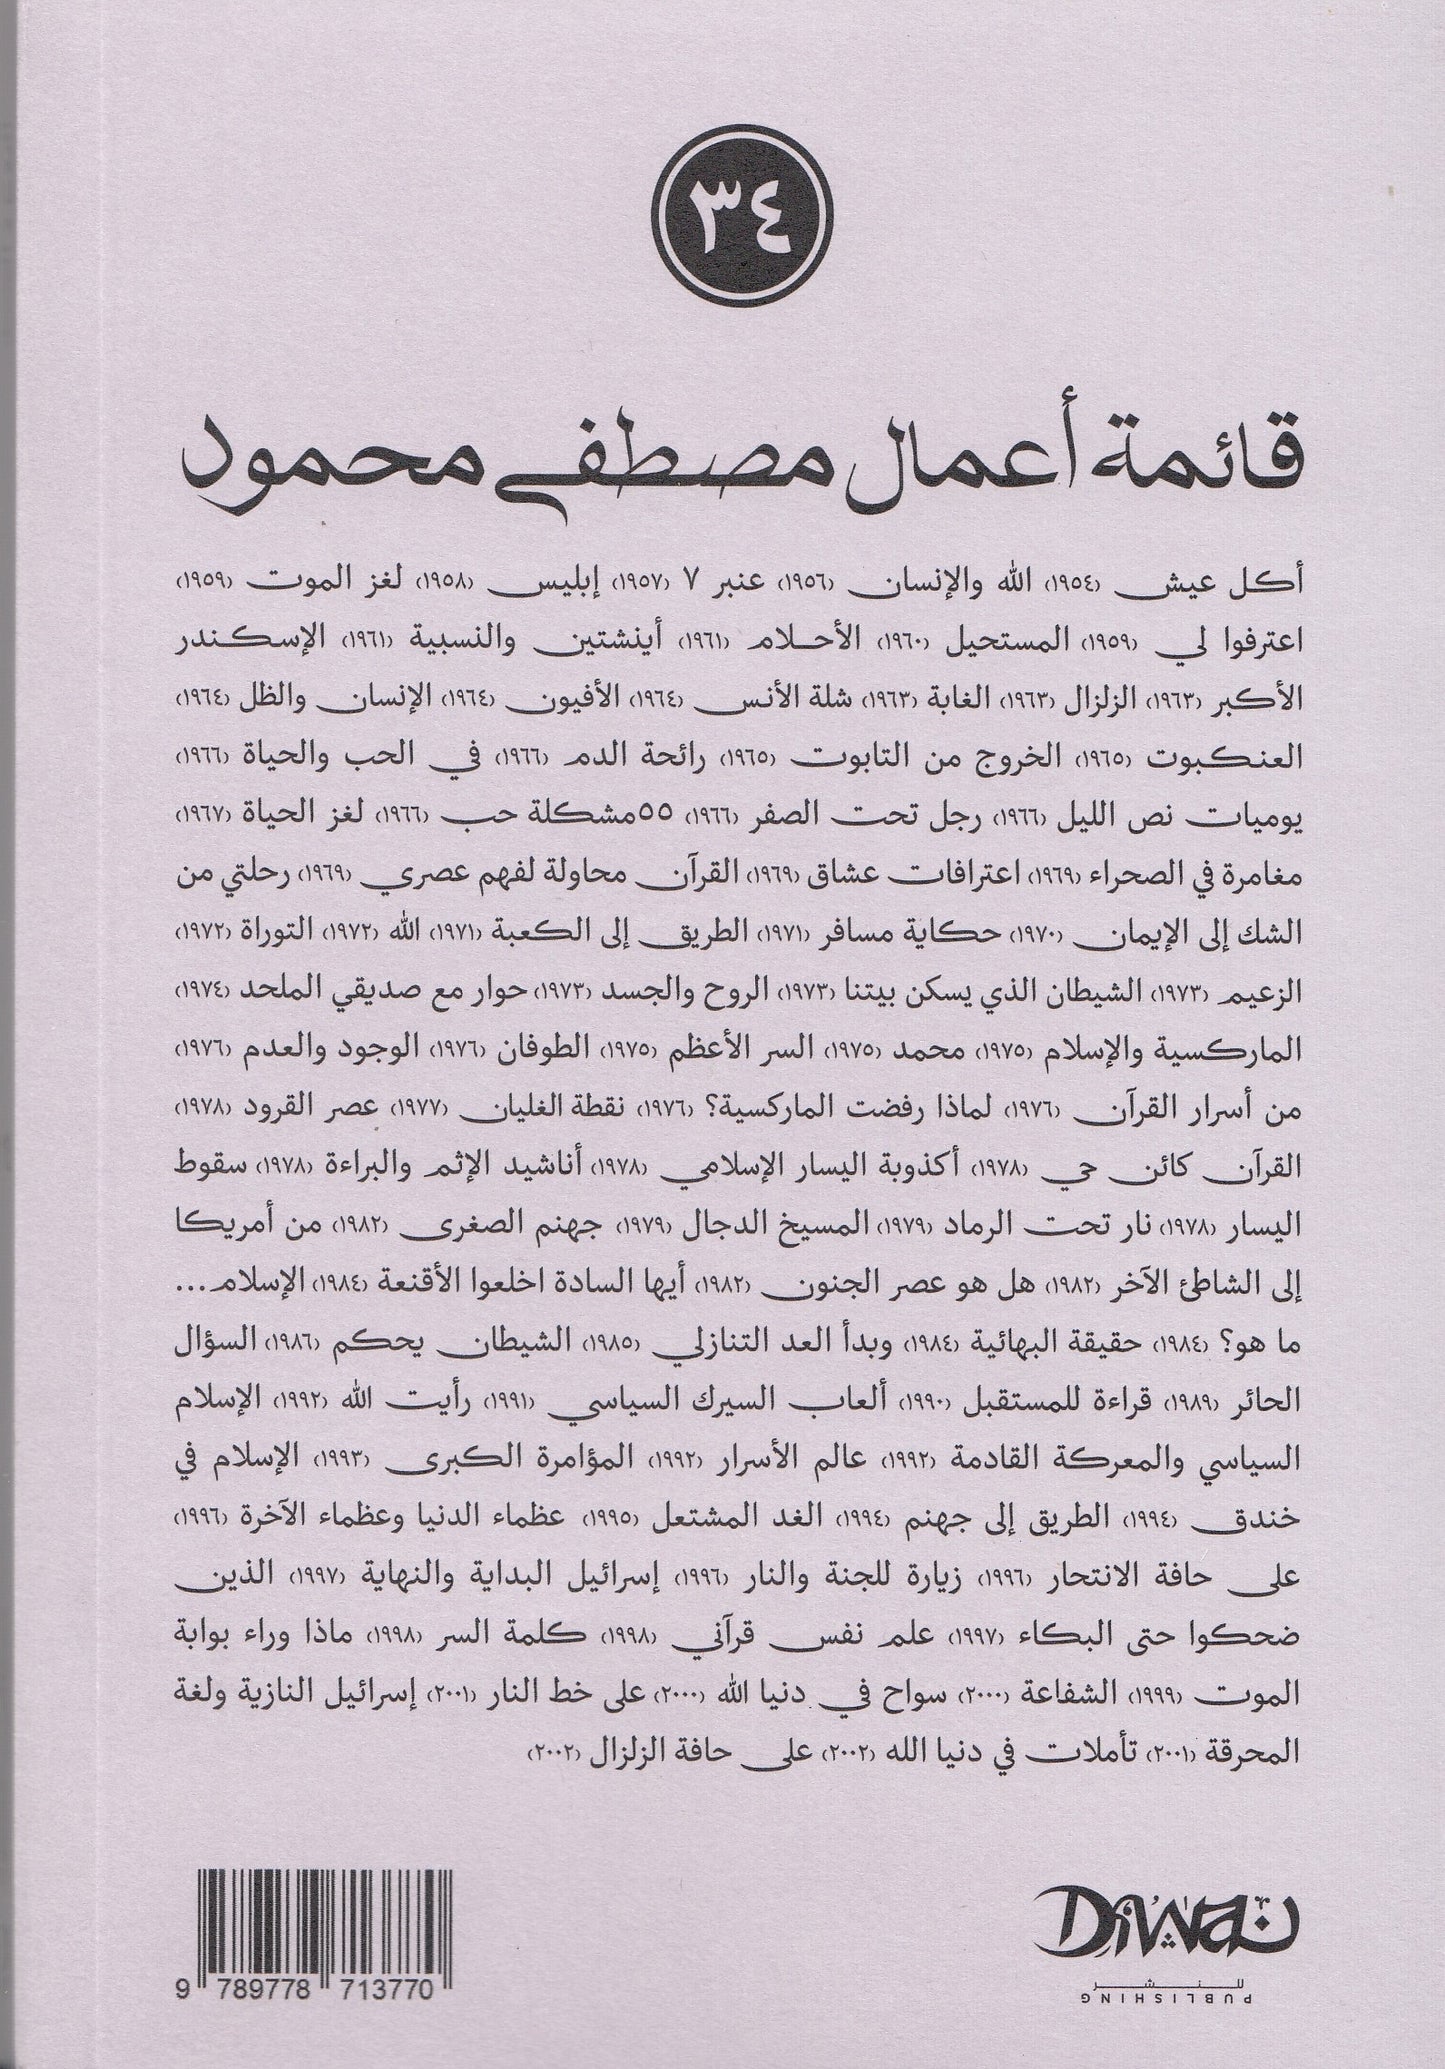 ٣٤
قائمة أعمال مصطفى محمود
أكل عيش (١٩٥٤) الله والإنسان (١٩٥٦) عنبر ٧ (١٩٥٧) إبليس (١٩٥٨) لغز الموت (١٩٥٩)
اعترفوا لي (١٩٥٩) المستحيل (١٩٦٠) الأحلام (١٩٦١) أينشتين والنسبية (١٩٦١) الإسكندر
الأكبر (١٩٦٣) الزلزال (١٩٦٣) الغابة (١٩٦٣) شلة الأنس (١٩٦٤) الأفيون (١٩٦٤) الإنسان والظل (١٩٦٤)
العنكبوت (١٩٦٥) الخروج من التابوت (١٩٦٥) رائحة الدم (١٩٦٦) في الحب والحياة (١٩٦٦)
يوميات نص الليل (١٩٦٦) رجل تحت الصفر (١٩٦٦) ٥٥مشكلة حب (١٩٦٦) لغز الحياة (١٩٦٧)
مغامرة في الصحراء (١٩٦٩) اعترافات عشاق (١٩٦٩) القرآن محاولة لفهم عصري (١٩٦٩) رحلتي من
الشك إلى الإيمان (١٩٧٠) حكاية مسافر (١٩٧١) الطريق إلى الكعبة (١٩٧١) الله (١٩٧٢) التوراة (١٩٧٢)
الزعيم (١٩٧٣) الشيطان الذي يسكن بيتنا (١٩٧٣) الروح والجسد (١٩٧٣) حوار مع صديقي الملحد (١٩٧٤)
الماركسية والإسلام (١٩٧٥) محمد (١٩٧٥) السر الأعظم (١٩٧٥) الطوفان (١٩٧٦) الوجود والعدم (١٩٧٦)
من أسرار القرآن (١٩٧٦) لماذا رفضت الماركسية؟ (١٩٧٦) نقطة الغليان (١٩٧٧) عصر القرود (١٩٧٨)
القرآن كائن حي (١٩٧٨) أكذوبة اليسار الإسلامي (١٩٧٨) أناشيد الإثم والبراءة (١٩٧٨) سقوط
اليسار (١٩٧٨) نار تحت الرماد (١٩٧٩) المسيخ الدجال (١٩٧٩) جهنم الصغرى (١٩٨٢) من أمريكا
إلى الشاطئ الآخر (١٩٨٢) هل هو عصر الجنون (١٩٨٢) أيها السادة اخلعوا الأقنعة (١٩٨٤) الإسلام...
ما هو؟ (١٩٨٤) حقيقة البهائية (١٩٨٤) وبدأ العد التنازلي (١٩٨٥) الشيطان يحكم (١٩٨٦) السؤال
الحائر (١٩٨٩) قراءة للمستقبل (١٩٩٠) ألعاب السيرك السياسي (١٩٩١) رأيت الله (١٩٩٢) الإسلام
السياسي والمعركة القادمة (١٩٩٢) عالم الأسرار (١٩٩٢) المؤامرة الكبرى (١٩٩٣) الإسلام في
خندق (١٩٩٤) الطريق إلى جهنم (١٩٩٤) الغد المشتعل (١٩٩٥) عظماء الدنيا وعظماء الآخرة (١٩٩٦)
على حافة الانتحار (١٩٩٦) زيارة للجنة والنار (١٩٩٦) إسرائيل البداية والنهاية (١٩٩٧) الذين
ضحكوا حتى البكاء (١٩٩٧) علم نفس قرآني (١٩٩٨) كلمة السر (١٩٩٨) ماذا وراء بوابة
الموت (١٩٩٩) الشفاعة (٢٠٠٠) سواح في دنيا الله (٢٠٠٠) على خط النار (٢٠٠١) إسرائيل النازية ولغة
المحرقة (٢٠٠١) تأملات في دنيا الله (٢٠٠٢) على حافة الزلزال (٢٠٠٢)
9 789778 713770
DiWaN
للنشر
PUBLISHING